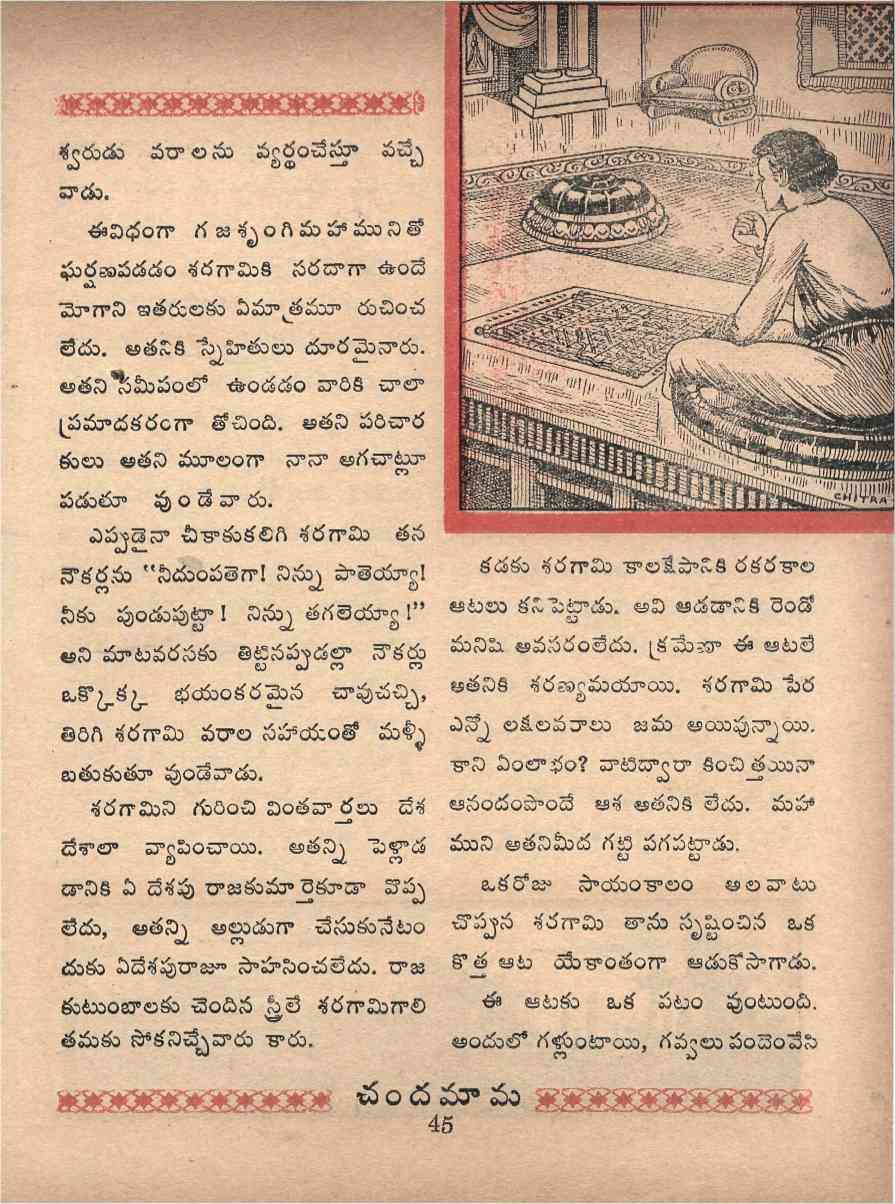 శ్వరుడు వరాలను వ్యర్థంచేస్తూ వచ్చే
వాడు.
ఈవిధంగా గజశృంగిమహామునితో
ఘర్షణపడడం శరగామికి సరదాగా ఉందే
మోగాని ఇతరులకు ఏమాత్రమూ రుచించ
లేదు. అతనికి స్నేహితులు దూరమైనారు.
అతని సమీపంలో ఉండడం వారికి చాలా
ప్రమాదకరంగా తోచింది. అతని పరిచార
కులు అతని మూలంగా నానా అగచాట్లూ
పడుతూ వుండేవారు.
ఎప్పుడైనా చీకాకుకలిగి శరగామి తన
నౌకర్లను “నీదుంపతెగా! నిన్ను పాతెయ్యా!
నీకు పుండుపుట్టా! నిన్ను తగలెయ్యా!”
అని మాటవరసకు తిట్టినప్పుడల్లా నౌకర్లు
ఒక్కొక్క భయంకరమైన చావుచచ్చి,
తిరిగి శరగామి వరాల సహాయంతో మళ్ళీ
బతుకుతూ వుండేవాడు.
శరగామిని గురించి వింతవార్తలు దేశ
దేశాలా వ్యాపించాయి. అతన్ని పెళ్లాడ
డానికి ఏ దేశపు రాజకుమార్తెకూడా వొప్ప
లేదు, అతన్ని అల్లుడుగా చేసుకునేటం
దుకు ఏదేశపురాజూ సాహసించలేదు. రాజ
కుటుంబాలకు చెందిన స్త్రీలే శరగామిగాలి
తమకు సోకనిచ్చేవారు కారు.
CHITRA
కడకు శరగామి కాలక్షేపానికి రకరకాల
ఆటలు కనిపెట్టాడు. అవి ఆడడానికి రెండో
మనిషి అవసరంలేదు. క్రమేణా ఈ ఆటలే
అతనికి శరణ్యమయాయి. శరగామి పేర
ఎన్నో లక్షలవరాలు జమ అయిపున్నాయి.
కాని ఏంలాభం? వాటిద్వారా కించిత్తయినా
ఆనందంపొందే ఆశ అతనికి లేదు. మహా
ముని అతనిమీద గట్టి పగపట్టాడు.
ఒకరోజు సాయంకాలం అలవాటు
చొప్పున శరగామి తాను సృష్టించిన ఒక
కొత్త ఆట యేకాంతంగా ఆడుకోసాగాడు.
ఈ ఆటకు ఒక పటం వుంటుంది.
అందులో గళ్లుంటాయి, గవ్వలు పందెంవేసి
చందమామ
45